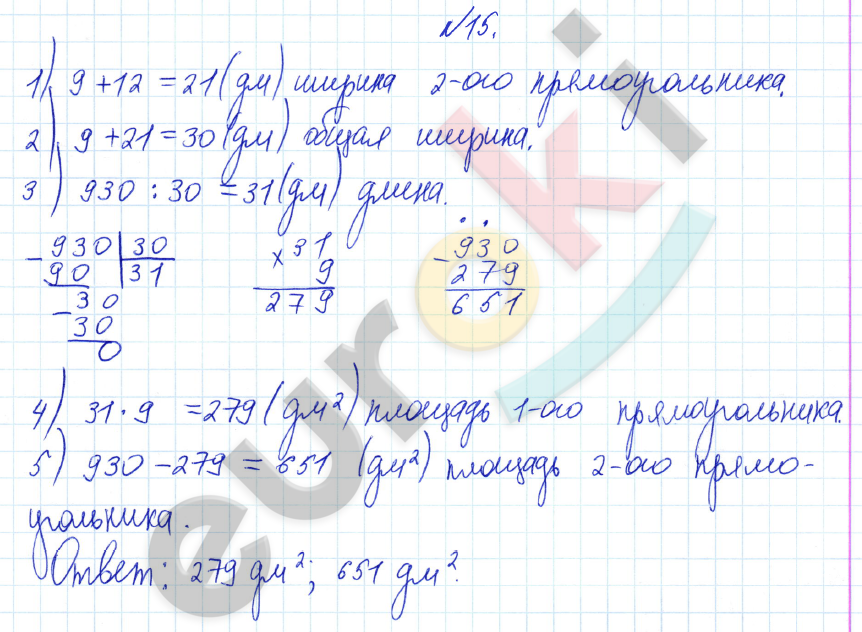 №15.
1) 9 + 12 = 21 (дм) ширина 2-ого прямоугольника.
2) 9 + 21 = 30 (дм) общая ширина.
3) 930 : 30 = 31 (дм) длина.
- 930 | 30    × 31    - 930
90 | 31    9    279
- 30    279    651
30
0
4) 31 · 9 = 279 (дм²) площадь 1-ого прямоугольника.
5) 930 - 279 = 651 (дм²) площадь 2-ого прямо-
угольника.
Ответ: 279 дм²; 651 дм².
euroki